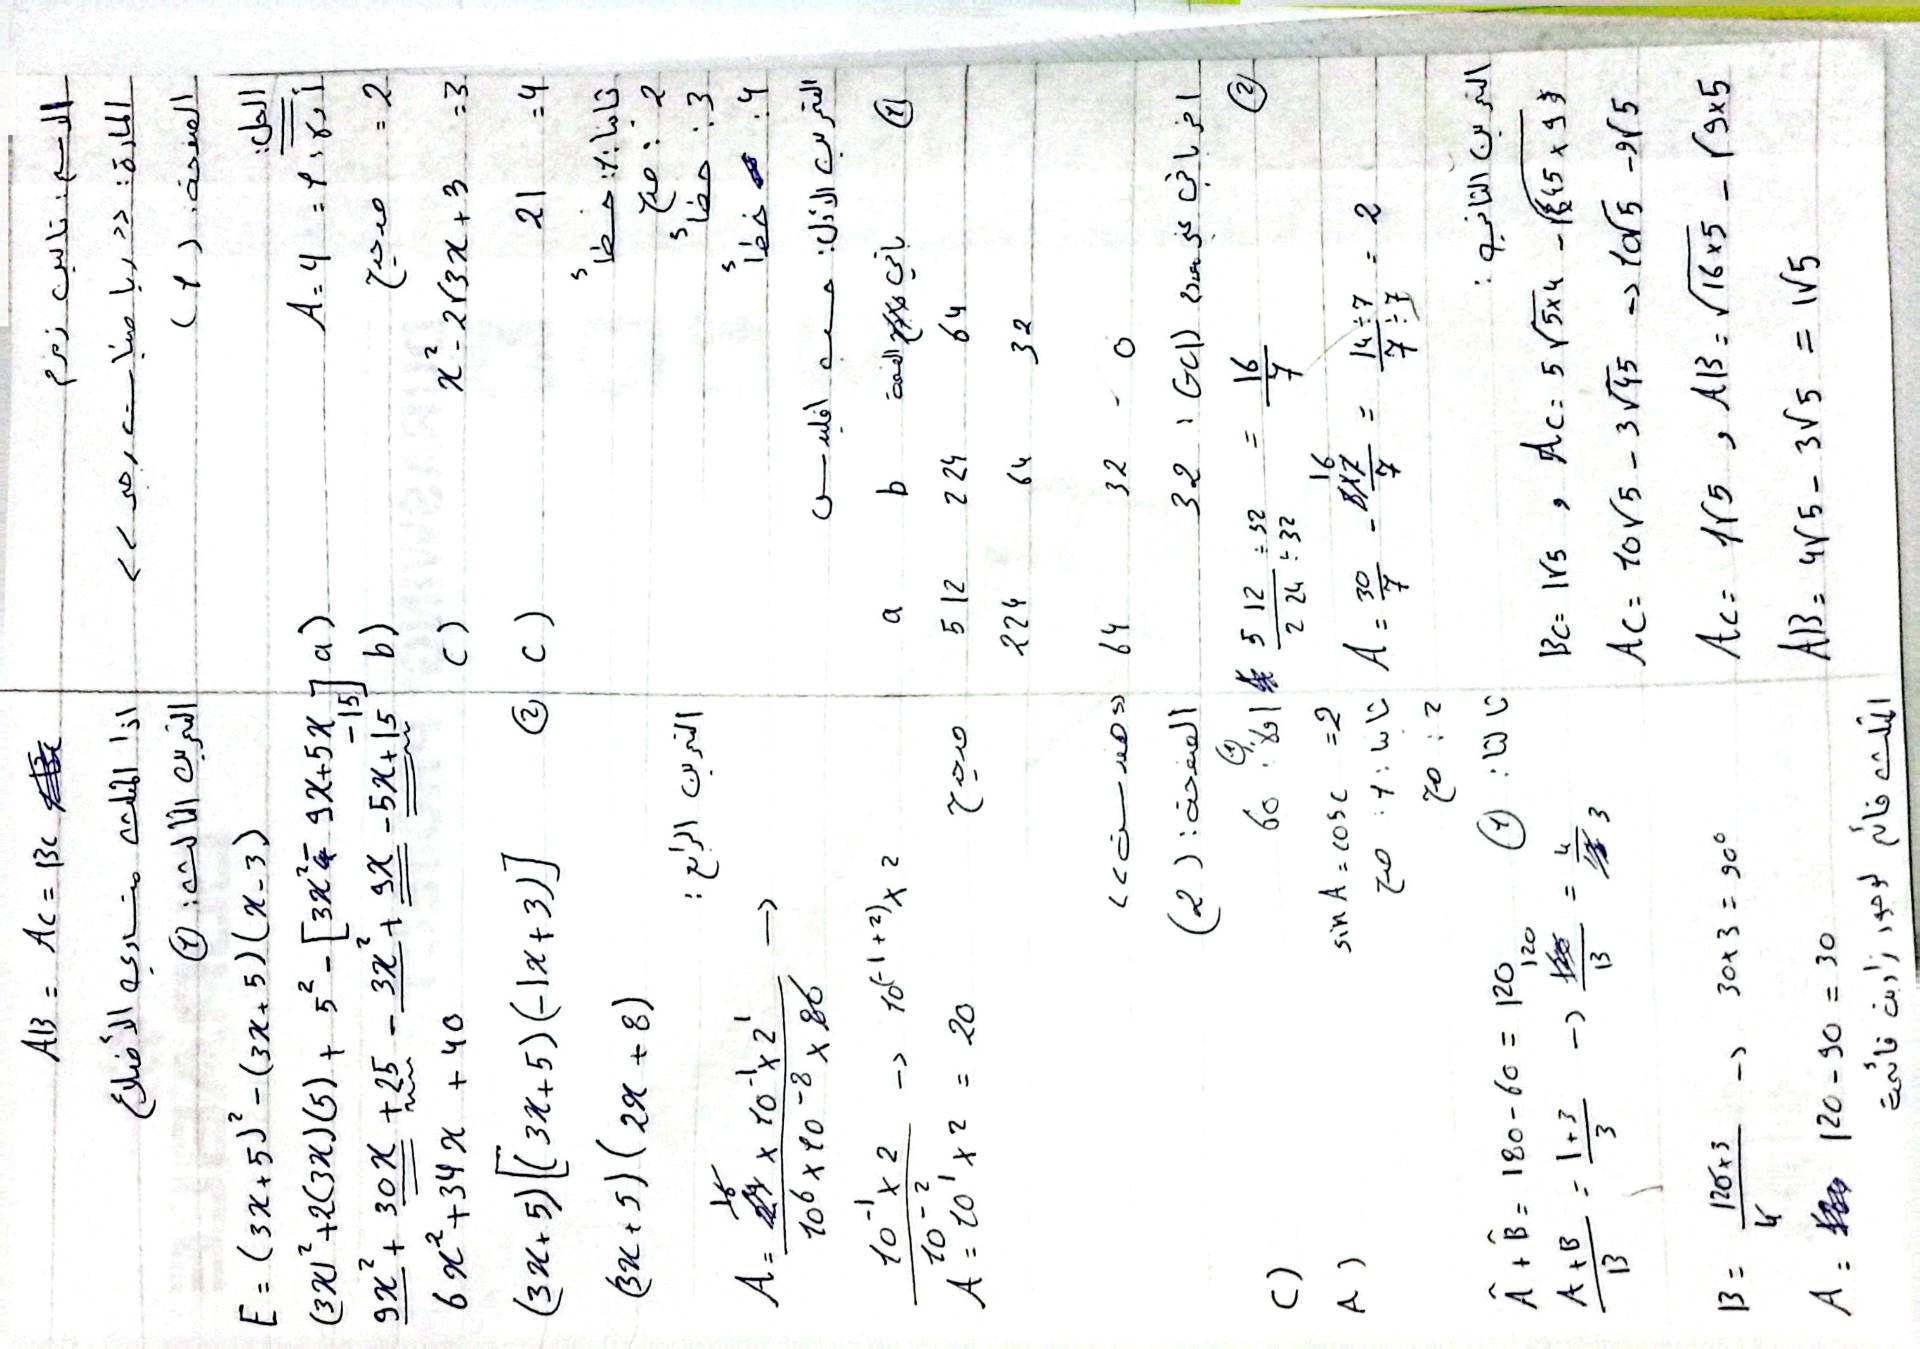 الاسم: تاليت زمرم
المادة: <<رياضيات رصد>>
الصفحة: (1)
الحل:
أولاً: 1= A = 4 a)
2= صحيح b)
3= x² - 2√3x + 3 c)
4= 21 c)
ثانياً: 1: خطأ
2: صح
3: خطأ
4: خطأ
التمرين الأول: حسب اقليدس
①
a b باقي القسمة
512 224 64
224 64 32
64 32 0
اخر باقي غير معدوم GCD: 32
② 512÷32 / 224÷32 = 16/7
A = 30/7 - 16/7 = 14÷7 / 7÷7 = 2
التمرين الثاني:
BC = 1√5 , AC = 5√5×4 - √45×9
AC = 10√5 - 3√45 → 10√5 - 9√5
AC = 1√5 , AB = √16×5 - √9×5
AB = 4√5 - 3√5 = 1√5
AB = AC = BC
اذا المثلث متساوي الأضلاع
التمرين الثالث: ①
E = (3x+5)² - (3x+5)(x-3)
(3x)² + 2(3x)(5) + 5² - [3x² - 9x + 5x - 15]
9x² + 30x + 25 - 3x² + 9x - 5x + 15
6x² + 34x + 40
②
(3x+5)[(3x+5)(-1x+3)]
(3x+5)(2x+8)
التمرين الرابع:
A = 16 × 10⁻¹ × 2¹ / 10⁶ × 10⁻⁸ × 86 →
10⁻¹ × 2 / 10⁻² → 10⁽⁻¹⁺²⁾ × 2
A = 10¹ × 2 = 20 صحيح
الصفحة: (2)
أولاً: ① 60 C)
2= sin A = cos C A)
ثانيا: 1: صح
2: صح
ثالثا: ①
Â + B̂ = 180 - 60 = 120
A+B / B = 1+3 / 3 → 120 / B = 4 / 3
B = 120×3 / 4 → 30×3 = 90°
A = 120 - 90 = 30
المثلث قائم لوجود زاوية قائمة